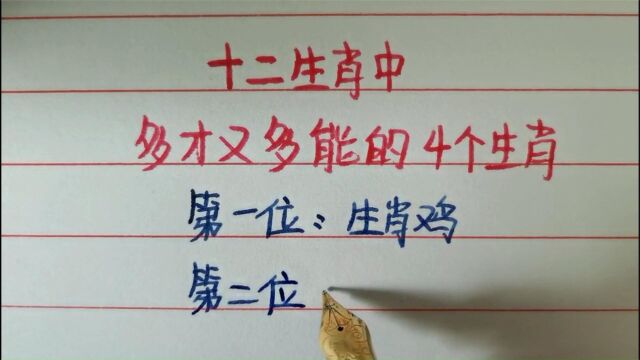 十二生肖中
多才又多能的4个生肖
第一位：生肖鸡
第二位